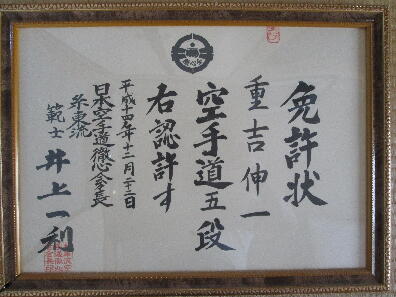 免許状
重吉伸一
空手道五段
右認許す
平成十四年十二月二十二日
日本空手道徹心会会長
糸東流
範士 井上一利